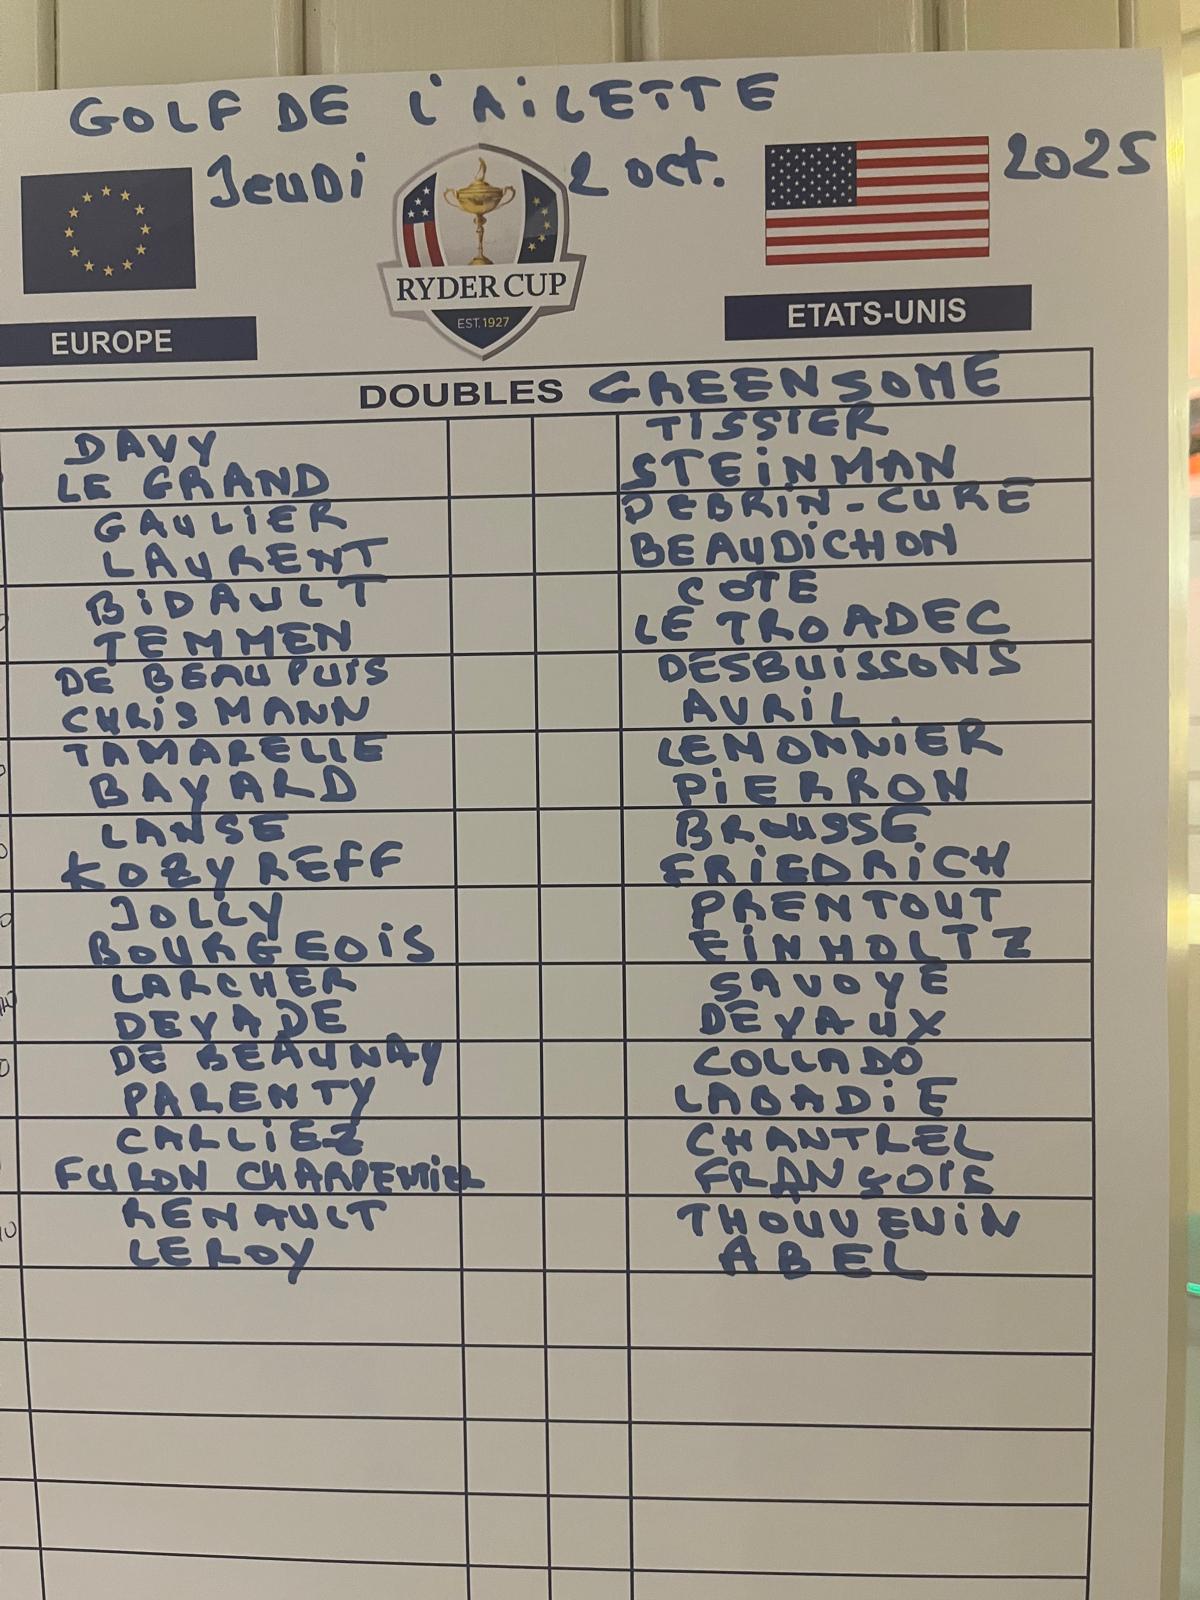 GOLF DE L'AILETTE
Jeudi 2 oct. 2025
RYDER CUP
EST. 1927
EUROPE
ETATS-UNIS
DOUBLES GREENSOME
DAVY
LE GRAND
TISSIER
STEINMAN
GAULIER
LAURENT
DEBRIN-CURE
BEAUDICHON
BIDAULT
TEMMEN
COTE
LE TROADEC
DE BEAUPUIS
CHRISMANN
DESBUISSONS
AVRIL.
TAMARELLE
BAYARD
LEMONNIER
PIERRON
LANSE
KOZYREFF
BROUSSE
FRIEDRICH
JOLLY
BOURGEOIS
PRENTOUT
EINHOLTZ
LARCHER
DEVADE
SAVOYE
DEVAUX
DE BEAUNAY
PARENTY
COLLADO
LABADIE
CARLIEZ
FURON CHARPENTIER
CHANTREL
FRANÇOIS
RENAULT
LEROY
THOUVENIN
ABEL